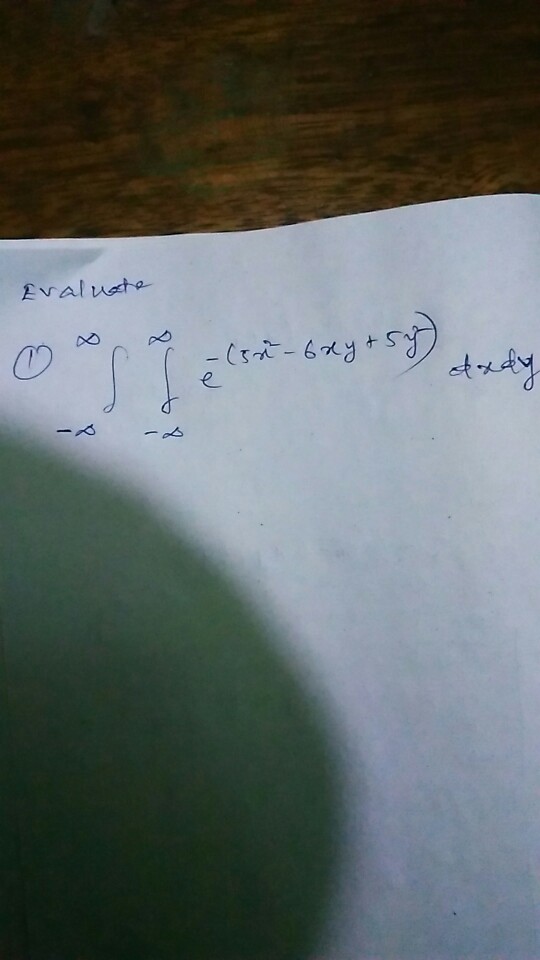 Evaluate
① ∫_{-∞}^{∞} ∫_{-∞}^{∞} e^{-(5x²-6xy+5y²)} dxdy